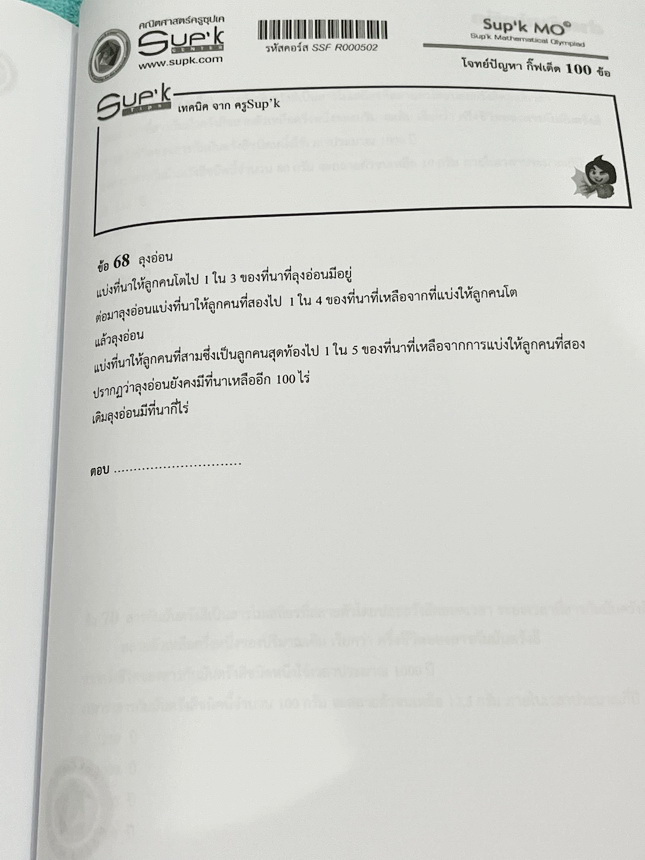 คณิตศาสตร์ครูซุปเค
Sup'k
CENTER
www.supk.com
รหัสคอร์ส SSF R000502
Sup'k MO
Sup'k Mathematical Olympiad
โจทย์ปัญหา กิ๊ฟเต็ด 100 ข้อ
Sup'k
TIPS
เทคนิค จาก ครูSup'k
ข้อ 68 ลุงอ่อน
แบ่งที่นาให้ลูกคนโตไป 1 ใน 3 ของที่นาที่ลุงอ่อนมีอยู่
ต่อมาลุงอ่อนแบ่งที่นาให้ลูกคนที่สองไป 1 ใน 4 ของที่นาที่เหลือจากที่แบ่งให้ลูกคนโต
แล้วลุงอ่อน
แบ่งที่นาให้ลูกคนที่สามซึ่งเป็นลูกคนสุดท้องไป 1 ใน 5 ของที่นาที่เหลือจากการแบ่งให้ลูกคนที่สอง
ปรากฏว่าลุงอ่อนยังคงมีที่นาเหลืออีก 100 ไร่
เดิมลุงอ่อนมีที่นากี่ไร่
ตอบ ..............................